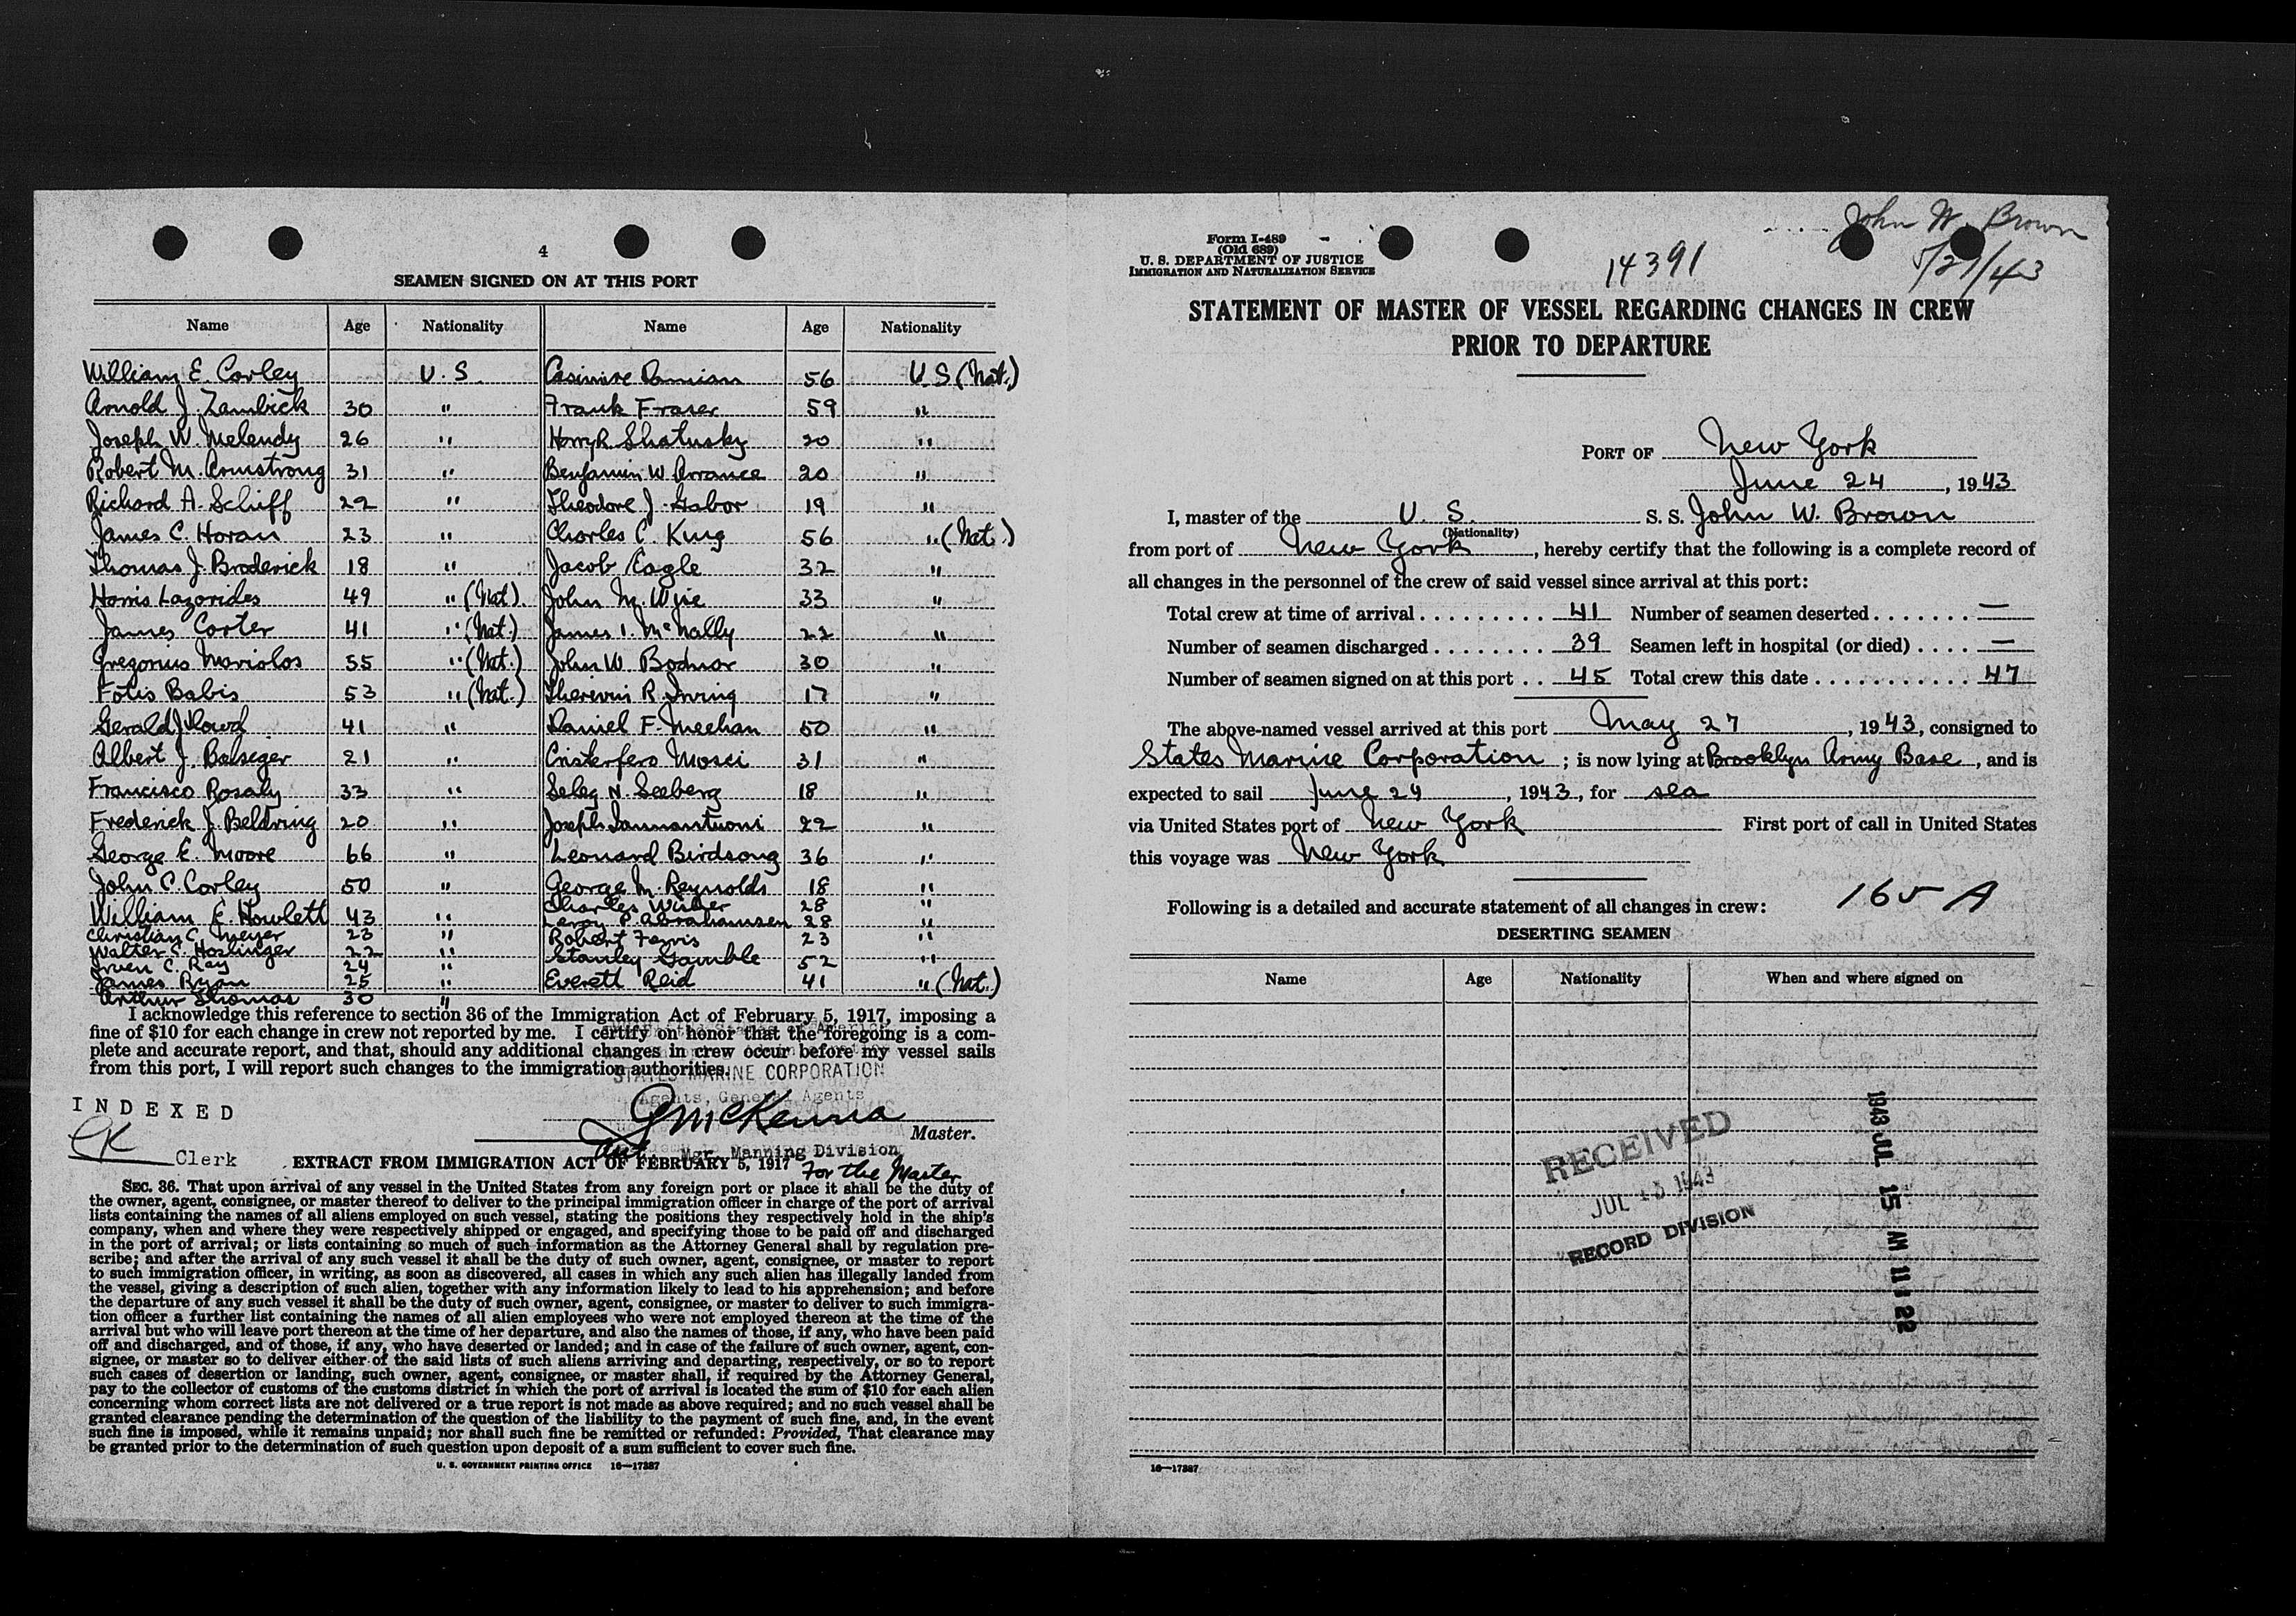 4
SEAMEN SIGNED ON AT THIS PORT
Name Age Nationality Name Age Nationality
William E. Corley U.S. Casimire Damian 56 U.S (Nat.)
Arnold J. Zambick 30 " Frank Fraser 59 "
Joseph W. Melendy 26 " Harry R. Shatusky 20 "
Robert M. Armstrong 31 " Benjamin W. Arrance 20 "
Richard A. Schiff 22 " Theodore J. Gabor 19 "
James C. Horan 23 " Charles C. King 56 " (Nat.)
Thomas J. Broderick 18 " Jacob Eagle 32 "
Harris Lazorides 49 " (Nat.) John M. Wise 33 "
James Corter 41 " (Nat.) James I. McNally 22 "
Gregorius Mariolos 55 " (Nat.) John W. Bodnar 30 "
Fotis Babis 53 " (Nat.) R. Irving 17 "
Gerald J. 41 " Daniel F. Meehan 50 "
Albert J. 21 " Cristerfero Mosci 31 "
Francisco Rosaly 33 " Seleg N. Seeberg 18 "
Frederick J. Beldring 20 " Joseph Iannantuoni 22 "
George E. Moore 66 " Leonard Birdsong 36 "
John C. Corley 50 " George M. Reynolds 18 "
William E. Howlett 43 " Charles 28 "
Leroy P. Abrahamsen 28 "
Christian C. Meyer 23 " Robert Ferris 23 "
Walter C. Hoslinger 22 " Stanley Gamble 52 "
C. Ray 24 "
James Ryan 25 " Everett Reid 41 " (Nat.)
Arthur Thomas 30 "
I acknowledge this reference to section 36 of the Immigration Act of February 5, 1917, imposing a
fine of $10 for each change in crew not reported by me. I certify on honor that the foregoing is a com-
plete and accurate report, and that, should any additional changes in crew occur before my vessel sails
from this port, I will report such changes to the immigration authorities.
STATES MARINE CORPORATION
Agents, General Agents
INDEXED
McKenna
Master.
Clerk
Mgr. Manning Division
For the Master
EXTRACT FROM IMMIGRATION ACT OF FEBRUARY 5, 1917
SEC. 36. That upon arrival of any vessel in the United States from any foreign port or place it shall be the duty of
the owner, agent, consignee, or master thereof to deliver to the principal immigration officer in charge of the port of arrival
lists containing the names of all aliens employed on such vessel, stating the positions they respectively hold in the ship's
company, when and where they were respectively shipped or engaged, and specifying those to be paid off and discharged
in the port of arrival; or lists containing so much of such information as the Attorney General shall by regulation pre-
scribe; and after the arrival of any such vessel it shall be the duty of such owner, agent, consignee, or master to report
to such immigration officer, in writing, as soon as discovered, all cases in which any such alien has illegally landed from
the vessel, giving a description of such alien, together with any information likely to lead to his apprehension; and before
the departure of any such vessel it shall be the duty of such owner, agent, consignee, or master to deliver to such immigra-
tion officer a further list containing the names of all alien employees who were not employed thereon at the time of the
arrival but who will leave port thereon at the time of her departure, and also the names of those, if any, who have been paid
off and discharged, and of those, if any, who have deserted or landed; and in case of the failure of such owner, agent, con-
signee, or master so to deliver either of the said lists of such aliens arriving and departing, respectively, or so to report
such cases of desertion or landing, such owner, agent, consignee, or master shall, if required by the Attorney General,
pay to the collector of customs of the customs district in which the port of arrival is located the sum of $10 for each alien
concerning whom correct lists are not delivered or a true report is not made as above required; and no such vessel shall be
granted clearance pending the determination of the question of the liability to the payment of such fine, and, in the event
such fine is imposed, while it remains unpaid; nor shall such fine be remitted or refunded: Provided, That clearance may
be granted prior to the determination of such question upon deposit of a sum sufficient to cover such fine.
U. S. GOVERNMENT PRINTING OFFICE 16—17387
John W. Brown
5/27/43
14391
Form I-489
(Old 689)
U. S. DEPARTMENT OF JUSTICE
IMMIGRATION AND NATURALIZATION SERVICE
STATEMENT OF MASTER OF VESSEL REGARDING CHANGES IN CREW
PRIOR TO DEPARTURE
PORT OF New York
June 24, 1943
I, master of the U. S. S. S. John W. Brown
(Nationality)
from port of New York, hereby certify that the following is a complete record of
all changes in the personnel of the crew of said vessel since arrival at this port:
Total crew at time of arrival . . . . . . . . . 41 Number of seamen deserted . . . . . . . —
Number of seamen discharged . . . . . . . . 39 Seamen left in hospital (or died) . . . . —
Number of seamen signed on at this port . . 45 Total crew this date . . . . . . . . . . . 47
The above-named vessel arrived at this port May 27, 1943, consigned to
States Marine Corporation; is now lying at Brooklyn Army Base, and is
expected to sail June 24, 1943, for sea
via United States port of New York First port of call in United States
this voyage was New York
165 A
Following is a detailed and accurate statement of all changes in crew:
DESERTING SEAMEN
Name Age Nationality When and where signed on
RECEIVED
JUL 13 1943
RECORD DIVISION
1943 JUL 15 AM 11:22
16—17387